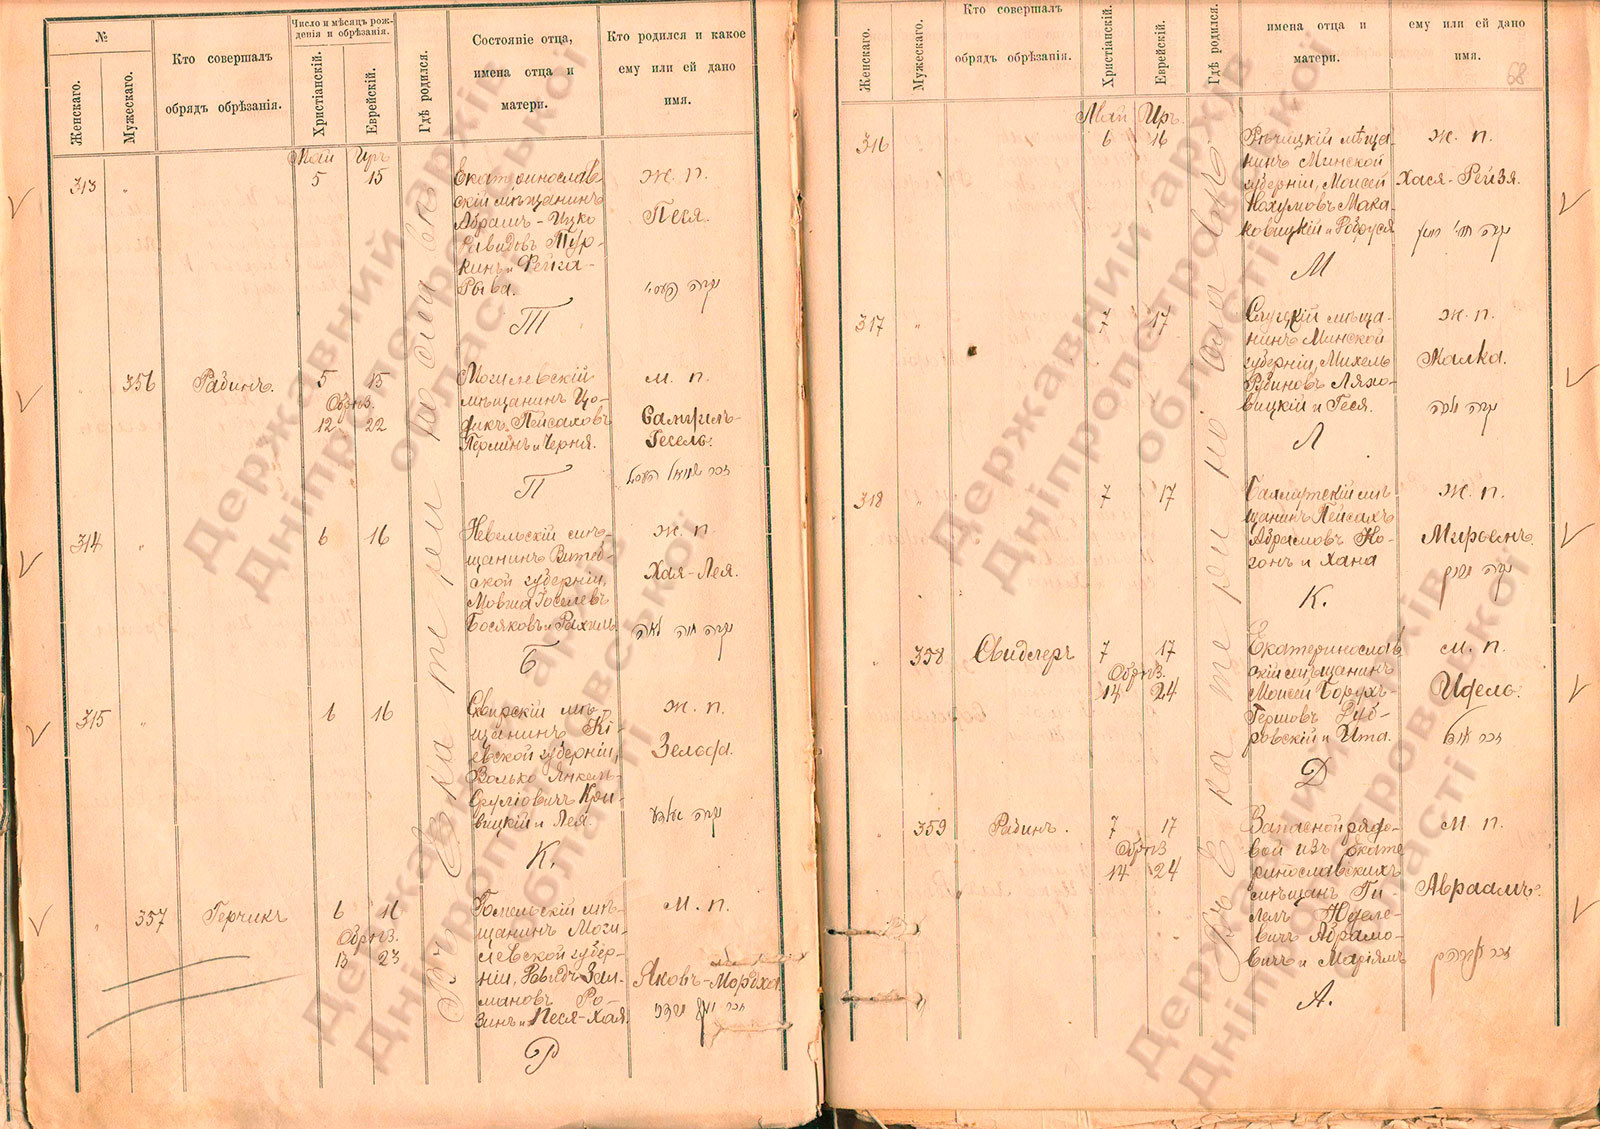 №
Женскаго.
Мужескаго.
Кто совершалъ
обрядъ обрѣзанія.
Число и мѣсяцъ рож-
денія и обрѣзанія.
Христіанскій.
Еврейскій.
Гдѣ родился.
Состояніе отца,
имена отца и
матери.
Кто родился и какое
ему или ей дано
имя.
Май Іръ
313 " 5 15
Екатеринослав
скій мѣщанинъ
Абрамъ-Ицко
Давидовъ Тур-
кинъ и Фейга-
Рыва.
Т
Ж. п.
Песя.
356 Рабинъ. 5 15
Обрѣз.
12 22
Могилевскій
мѣщанинъ Цо-
дикъ Пейсаховъ
Перлинъ и Черня.
П
м. п.
Самуилъ-
Гесель.
זכר שמואל העסיל
314 " 6 16
Невельскій мѣ-
щанинъ Витеб-
ской губерніи,
Мовша Іоселевъ
Босяковъ и Рахиль.
Б
Ж. п.
Хая-Лея.
נקבה חיה לאה
315 " 6 16
Сквирскій мѣ-
щанинъ Кі-
евской губерніи,
Волько Янкель-
Сруліовичъ Кри-
вицкій и Лея.
К.
Ж. п.
Зельда.
נקבה זעלדע
357 Герчикъ 6 16
Обрѣз.
13 23
Гомельскій мѣ-
щанинъ Моги-
левской губер-
ніи, Зал-
мановъ Ро-
зинъ и Песя-Хая.
Р
М. п.
Яковъ-Мордха
זכר יעקב מרדכי
Въ Екатеринославѣ
Женскаго.
Мужескаго.
Кто совершалъ
обрядъ обрѣзанія.
Христіанскій.
Еврейскій.
Гдѣ родился.
имена отца и
матери.
ему или ей дано
имя.
68
Май Іръ
316 6 16
Рѣчицкій мѣща-
нинъ Минской
губерніи, Моисей
Нохумовъ Мака-
ковицкій и
М
Ж. п.
Хася-Рейзя.
317 " 7 17
Слуцкій мѣща-
нинъ Минской
губерніи, Михель
Рувиновъ Ляхо-
вицкій и Геся.
Л
Ж. п.
Малка.
נקבה מלכה
318 7 17
Бахмутскій мѣ
щанинъ Пейсахъ
Абрамовъ Ко-
гонъ и Хана
К.
Ж. п.
Мирьемъ.
נקבה מרים
" 358 Свидлеръ 7 17
Обрѣз.
14 24
Екатеринослав
скій мѣщанинъ
Моисей Борухъ-
Гершовъ Дуб-
ровскій и Ита.
Д
м. п.
Идель.
זכר אידל
359 Рабинъ. 7 17
Обрѣз
14 24
Запасной рядо-
вой изъ Екате
ринославскихъ
мѣщанъ Ги-
лель Юделе-
вичъ Абрамо-
вичъ и Маріямъ
А.
м. п.
Авраамъ.
זכר אברהם
Въ Екатеринославѣ
Державний архів
Дніпропетровської
області